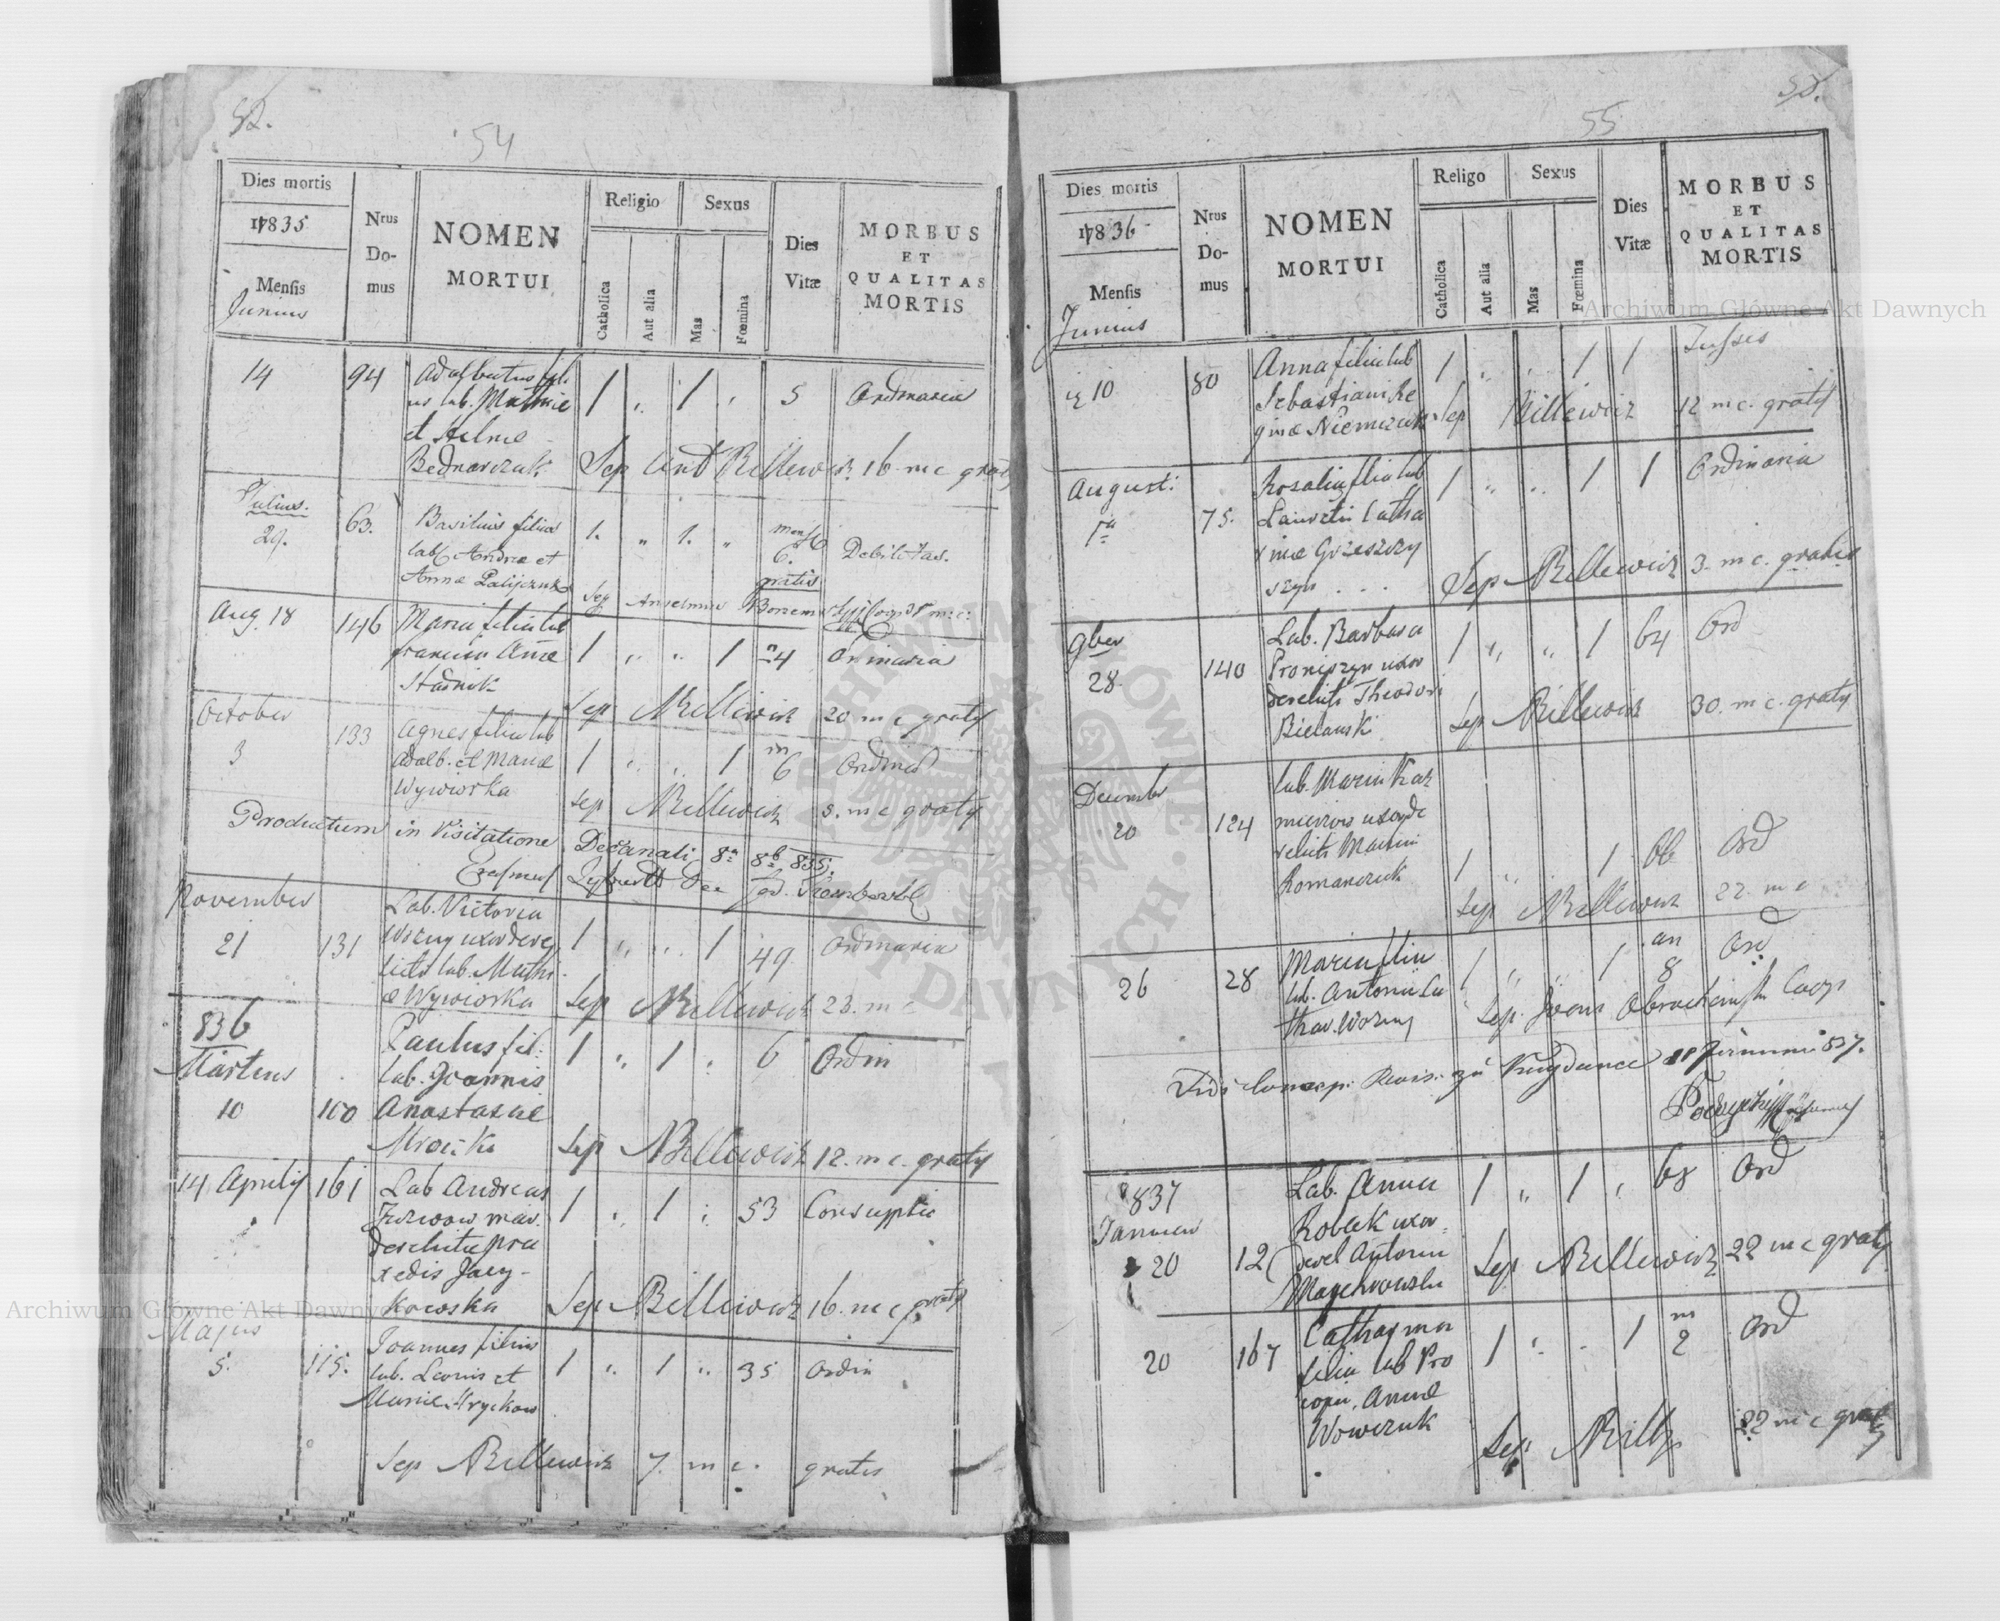 52.
54
Dies mortis
1835
Mensis
Junius
Nrus
Do-
mus
NOMEN
MORTUI
Religio
Catholica
Aut alia
Sexus
Mas
Fœmina
Dies
Vitæ
MORBUS
ET
QUALITAS
MORTIS
14 94 Adalbertus fili
us lab. Mathiæ 1 „ 1 „ 5 Ordinaria
et Helenæ
Bednarczuk Sep Ant Billewicz 16 m c gratis
Julius.
29. 63. Basilius filius 1. „ 1. „ mens 6. Debilitas.
lab. Andreæ et
Annæ Palijczuk gratis
Sep Anselmus
Aug 18 146 Maria filia lab
Francisci Annæ 1 „ „ 1 4 Orinaria
Stadnik
Sep Billewicz 20 m c gratis
October
3 133 Agnes filia lab
Adalb. et Mariæ 1 „ „ 1 m 6 Ordinar
Wywiorka
Sep Billewicz 3. m c gratis
Productum in Visitatione Decanali 8a 8b 835.
November
21 131 Lab. Victoria
Wozny uxor dere 1 „ „ 1 49 Ordinaria
licta lab. Mathi
æ Wywiorka Sep Billewicz 23. m c
836
Martius
10 100 Paulus fil: 1 „ 1 „ 6 Ordin
lab. Joannis
Anastasiæ
Mroczko Sep Billewicz 12. m c. gratis
14 Aprilis 161 Lab Andreas 1 „ 1 „ 53 Consumptio
mar.
derelictæ Pra
xedis Jacy-
kowska Sep Billewicz 16. m c gratis
Majus
5. 115. Joannes filius
lab. Leonis et 1 „ 1 „ 35 Ordin
Mariæ Hryckow
Sep Billewicz 7. m c. gratis
55
Dies mortis
1836
Mensis
Junius
Nrus
Do-
mus
NOMEN
MORTUI
Religo
Catholica
Aut alia
Sexus
Mas
Fœmina
Dies
Vitæ
MORBUS
ET
QUALITAS
MORTIS
10 80 Anna filia lab 1 „ „ 1 1 Tussis
Sebastiani Re
ginæ Niemczuk Sep Billewicz 12 m c. gratis
Augusti
1a 75. Rosalia filia lab 1 „ „ 1 1 Ordinaria
Laurentii Catha
rinæ Grzeszczy
szyn . . . Sep Billewicz 3. m c. gratis
9ber
28. 140 Lab. Barbara 1 „ „ 1 64 Ord
Proniszyn uxor
derelicta Theodori
Bielawski Sep Billewicz 30. m c. gratis
December
20 124 Lab. Maria Kaz
mierow uxor de
relicta Martini
Romanczuk 1 „ „ 1 Ord
Sep Billewicz 22. m c
26 28 Maria filia 1 „ „ 1 an 8 Ord
lab. Antonii Ca
thar. Wozny Sep. Joan Coop
837
Januar
20 Lab. Anna 1 „ 1 „ 68 Ord
Robak uxor
derel Antonii
Sep Billewicz 22 m c gratis
20 167 Catharina 1 „ „ 1 m 2 Ord
filia lab Pro
copii, Annæ
Wowczuk
Sep Bill 22 m c gratis
Archiwum Główne Akt Dawnych
Archiwum Główne Akt Dawnych
ARCHIWUM GŁÓWNE AKT DAWNYCH